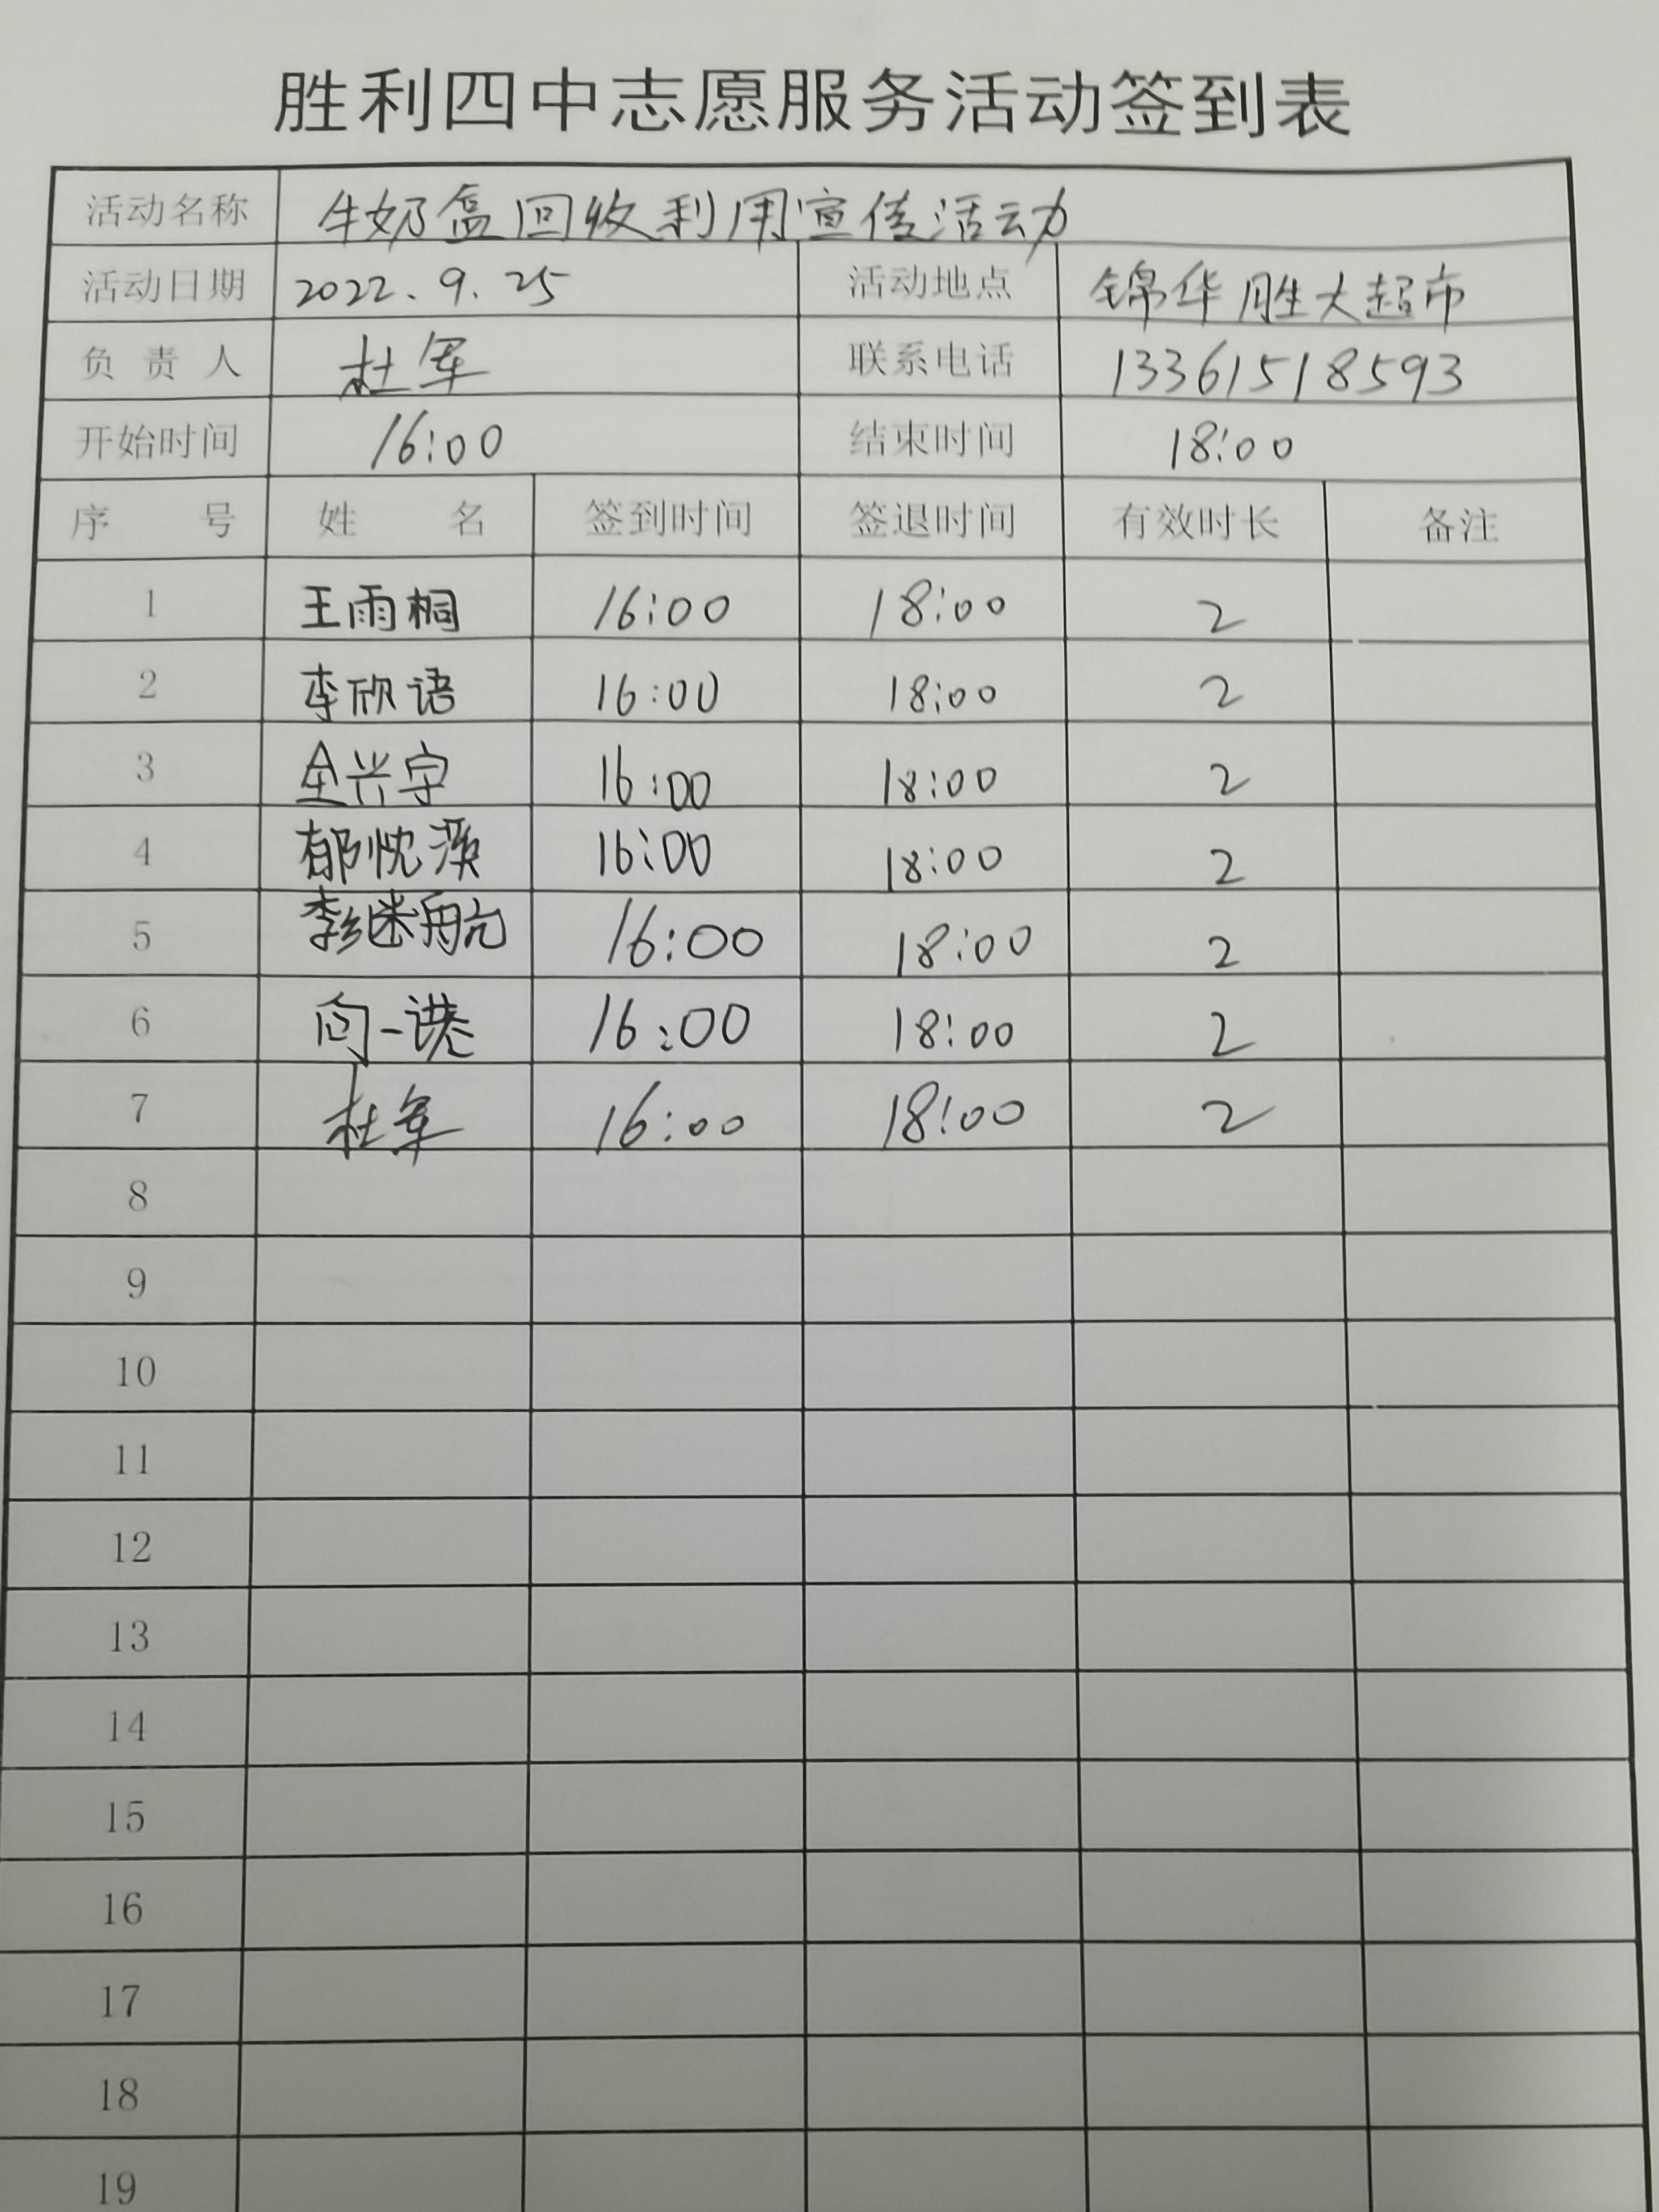 胜利四中志愿服务活动签到表
活动名称 牛奶盒回收利用宣传活动
活动日期 2022.9.25 活动地点 锦华胜大超市
负责人 杜军 联系电话 13361518593
开始时间 16:00 结束时间 18:00
序号 姓名 签到时间 签退时间 有效时长 备注
1 王雨桐 16:00 18:00 2
2 李欣语 16:00 18:00 2
3 全兴宇 16:00 18:00 2
4 郁忱溪 16:00 18:00 2
5 李继航 16:00 18:00 2
6 向一 16:00 18:00 2
7 杜军 16:00 18:00 2
8
9
10
11
12
13
14
15
16
17
18
19